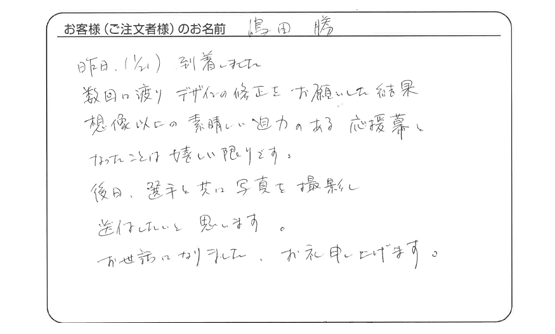 お客様(ご注文者様)のお名前 嶋田 勝
昨日、(1/21) 到着しました
数回に渡り デザインの修正を お願いした結果
想像以上の素晴しい迫力のある 応援幕と
なったことは 嬉しい限りです。
後日、選手と共に 写真を 撮影し
送付したいと 思います。
お世話になりました、お礼申し上げます。